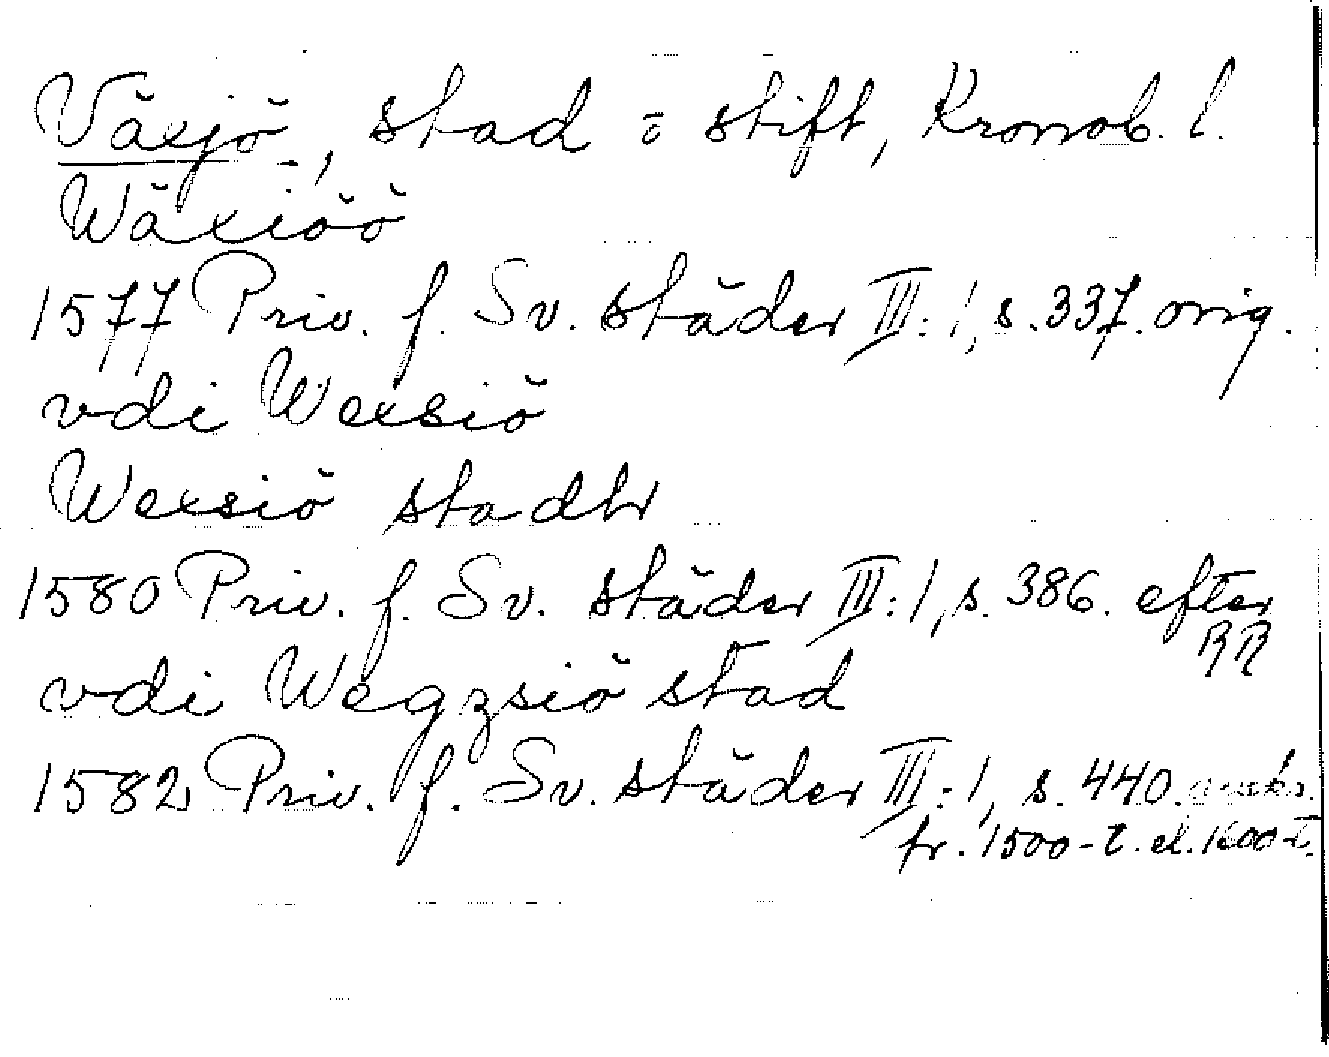 Växjö, stad o stift, Kronob. l.
Wäxiöö
1577 Priv. f. Sv. städer III:1, s. 337. orig.
vdi Wexsiö
Wexsiö stadhr
1580 Priv. f. Sv. städer III:1, s. 386. efter
RR
vdi Wegzsiö stad
1582 Priv. f. Sv. städer III:1, s. 440.
fr. 1500-t. el. 1600-t.